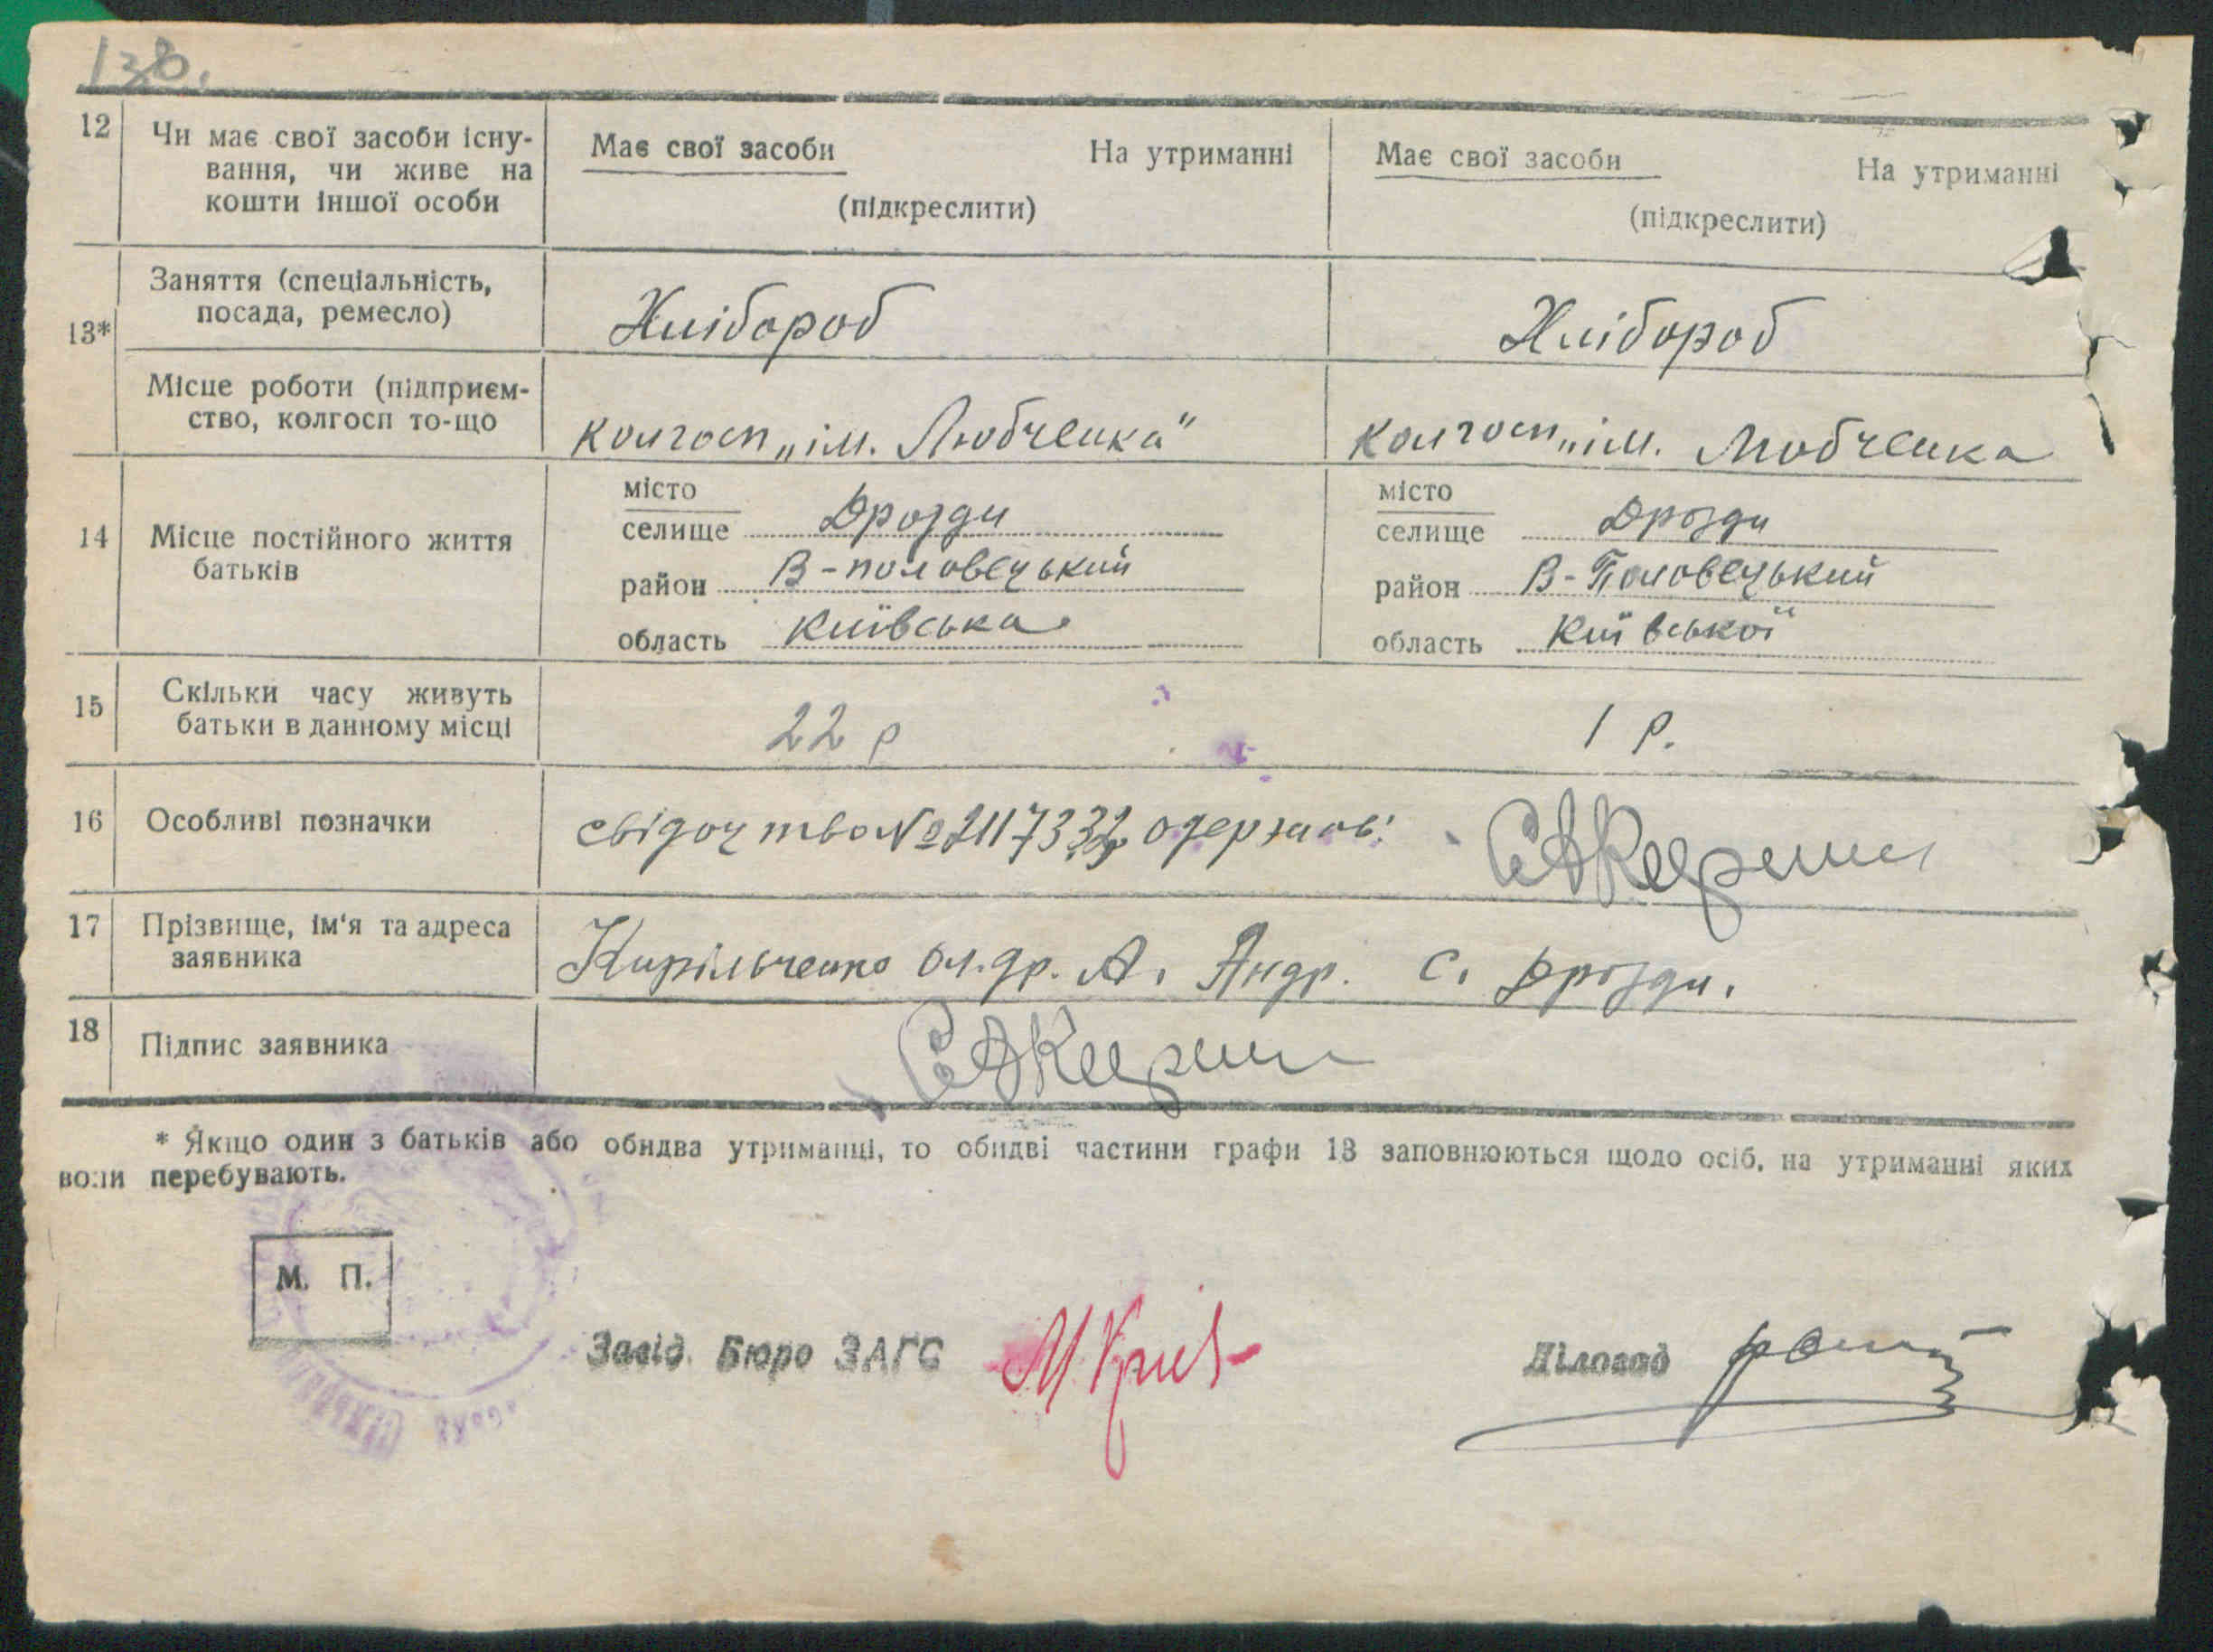 138.
12 Чи має свої засоби існу-
вання, чи живе на
кошти іншої особи
Має свої засоби На утриманні
(підкреслити)
Має свої засоби На утриманні
(підкреслити)
13*
Заняття (спеціальність,
посада, ремесло)
Хлібороб
Хлібороб
Місце роботи (підприєм-
ство, колгосп то-що
колгосп „ім. Любченка"
колгосп „ім. Любченка
14 Місце постійного життя
батьків
місто
селище Дрозди
район В-половецький
область Київська
місто
селище Дрозди
район В-Половецький
область Київської
15 Скільки часу живуть
батьки в данному місці
22 р
1 р.
16 Особливі позначки
свідоцтво № 2117332 одержав:
17 Прізвище, ім'я та адреса
заявника
Кирільченко Ол.др. А. Андр. С. Дрозди.
18 Підпис заявника
* Якщо один з батьків або обидва утриманці, то обидві частини графи 13 заповнюються щодо осіб, на утриманні яких
вони перебувають.
М. П.
Завід. Бюро ЗАГС
Діловод